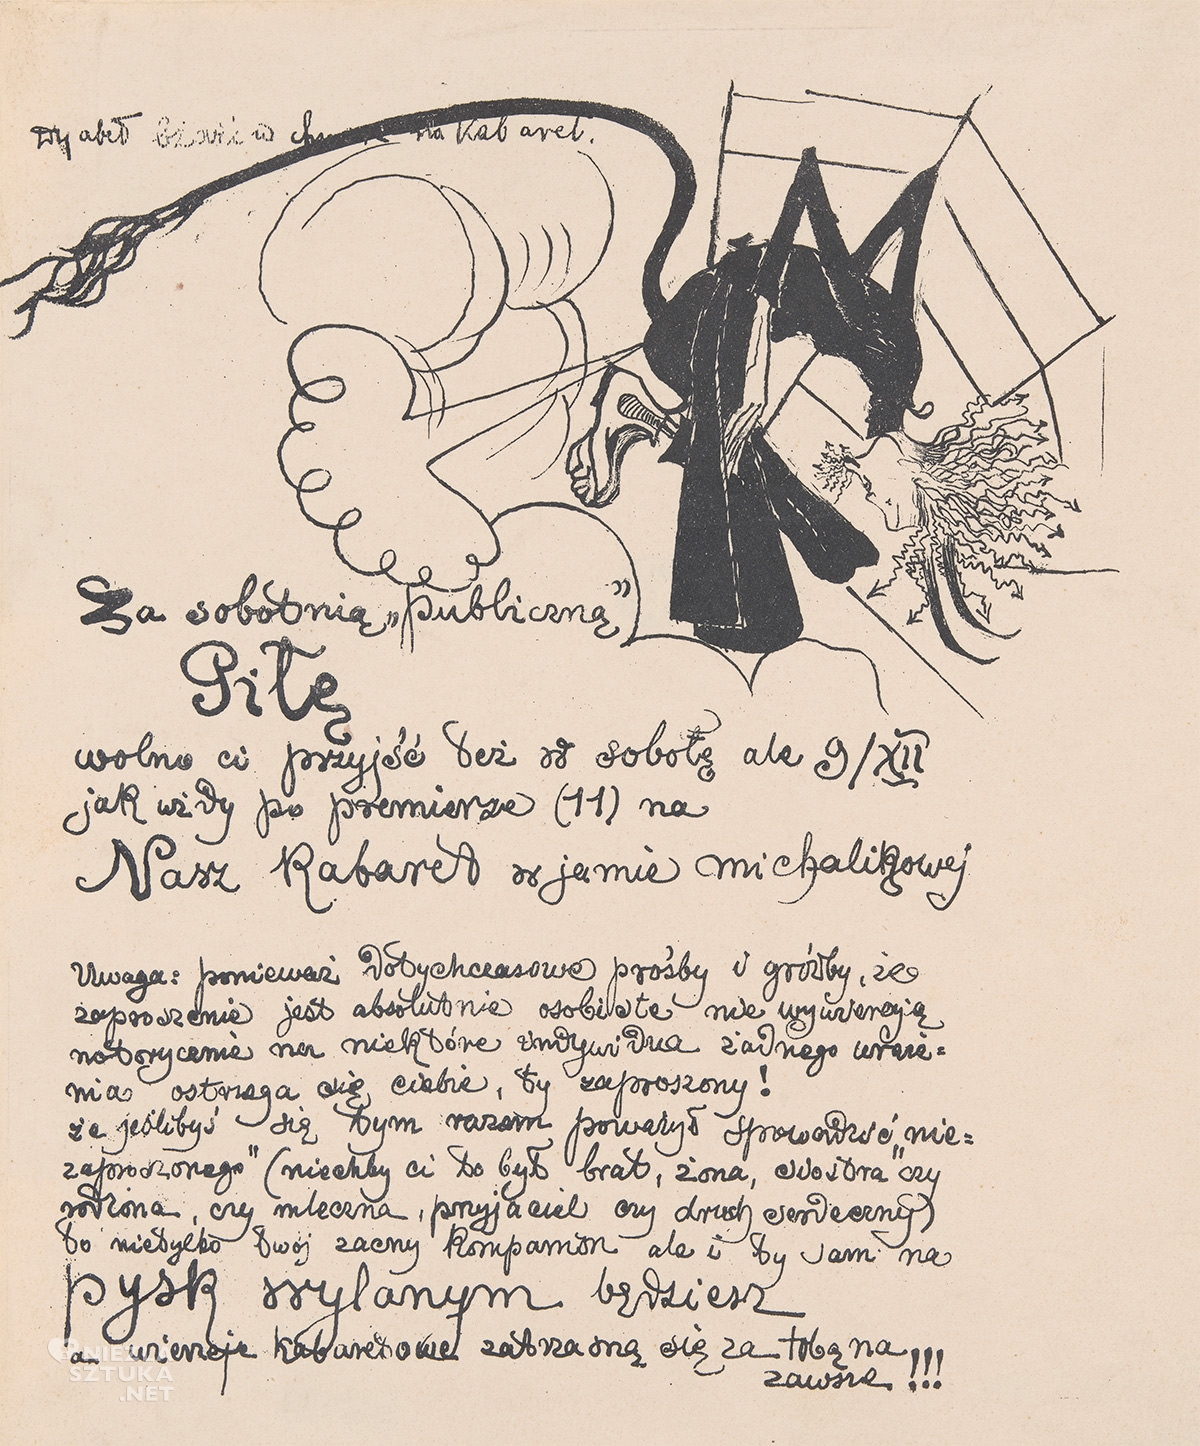 na Kabaret.
Za sobotnią „Publiczną”
Piłę
wolno ci przyjść też w sobotę ale 9/XII
jak wżdy po premierze (11) na
Nasz Kabaret w jamie michalikowej
Uwaga: ponieważ dotychczasowe prośby i groźby, że
zaproszenie jest absolutnie osobiste nie wywierają
notorycznie na niektóre indywidua żadnego wraże=
nia ostrzega się ciebie, ty zaproszony!
że jeślibyś się tym razem poważył sprowadzić „nie=
zaproszonego” (niechby ci to był brat, żona, siostra czy
rodzona, czy mleczna, przyjaciel czy druch serdeczny)
to nietylko twój zacny kompanion ale i ty sam na
pysk wylanym będziesz
a wierzeje kabaretowe zatrzasną się za tobą na
zawsze!!!
NIEZŁA
SZTUKA
.NET